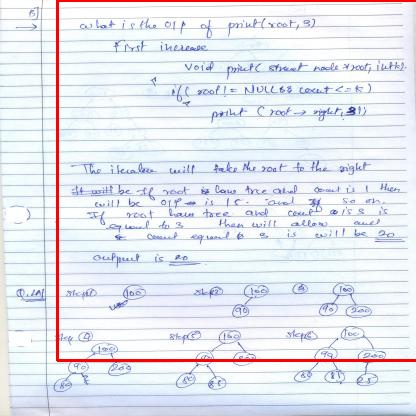 B]
what is the O/P of print(root, 3)
First increase
void print( struct node *root, int k)
if( root != NULL && count <= k)
print ( root → right, 3)
The iteration will take the root to the right
It will be If root is have tree and count is 1 then
will be O/P is 15. and so on.
If root have tree and count is 3 is
equal to 3 then will allow and
count equal 3 is will be 20
output is 20
Q.2A] Step1) 100 Step2) 100 100
90 90 200
Step 4) 100 Step5) 100 Step6) 100
90 200 90 200 90 200
80 80 85 80 85